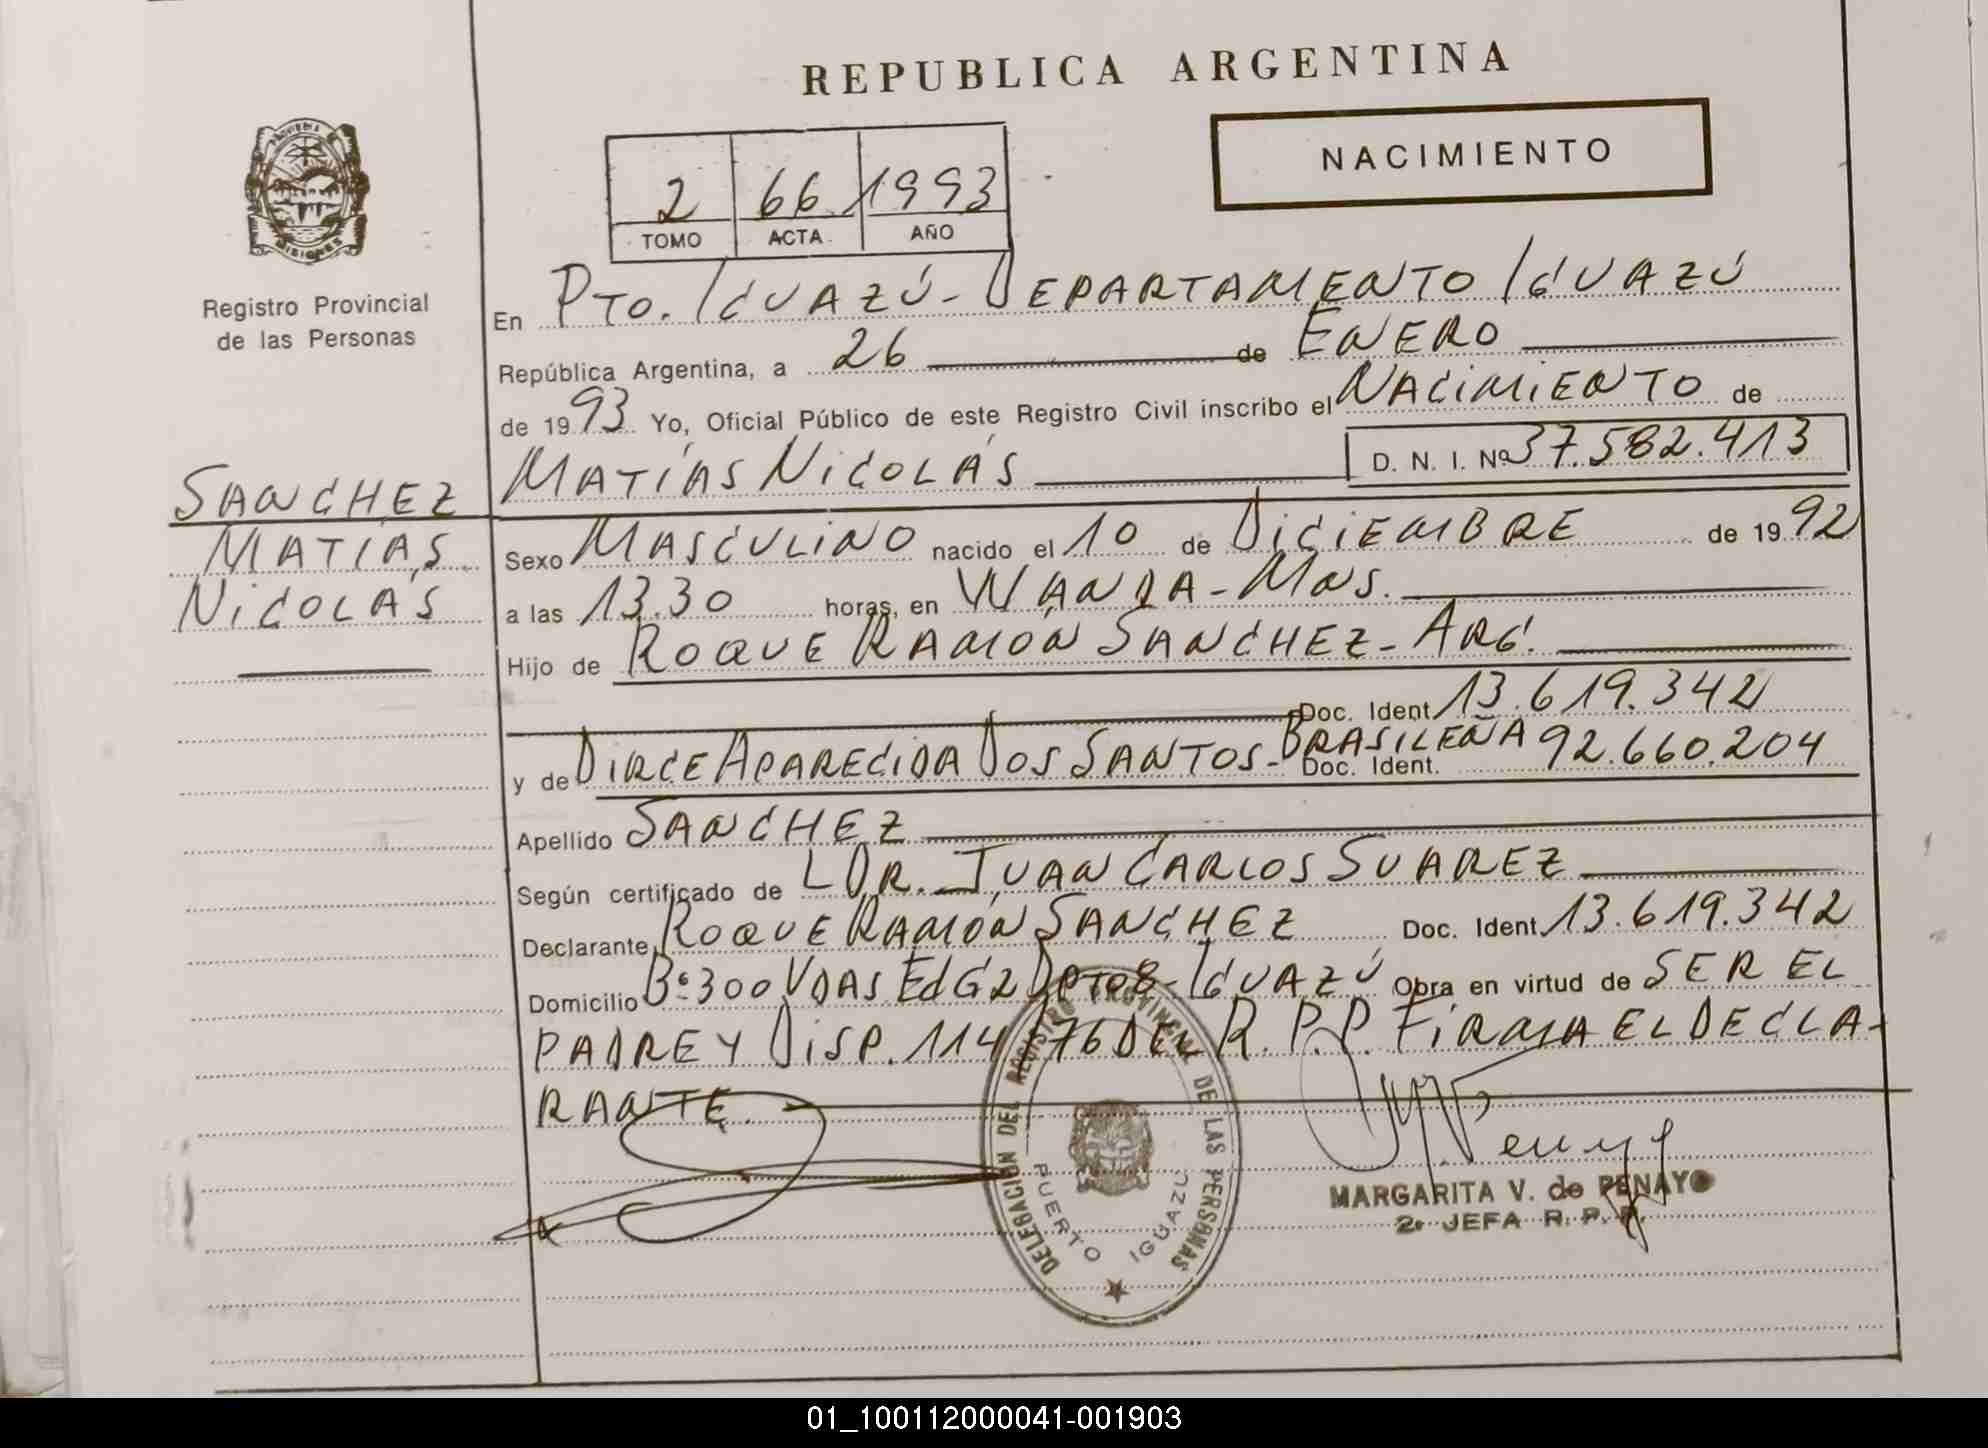 REPUBLICA ARGENTINA
NACIMIENTO
PROVINCIA
MISIONES
Registro Provincial
de las Personas
2 66 1993
TOMO ACTA AÑO
En PTO. IGUAZÚ - DEPARTAMENTO IGUAZÚ
República Argentina, a 26 de ENERO
de 1993 Yo, Oficial Público de este Registro Civil inscribo el NACIMIENTO de
MATÍAS NICOLÁS D. N. I. Nº 37.582.413
SANCHEZ
MATIAS
NICOLÁS
Sexo MASCULINO nacido el 10 de DICIEMBRE de 1992
a las 13.30 horas, en WANDA - MNS.
Hijo de ROQUE RAMÓN SANCHEZ - ARG.
Doc. Ident 13.619.342
y de DIRCE APARECIDA DOS SANTOS - BRASILEÑA Doc. Ident. 92.660.204
Apellido SANCHEZ
Según certificado de L DR. JUAN CARLOS SUAREZ
Declarante ROQUE RAMÓN SANCHEZ Doc. Ident 13.619.342
Domicilio Bº 300 VDAS Ed G2 DPTO 8 - IGUAZÚ Obra en virtud de SER EL
PADRE Y DISP. 114/76 DEL R. P. P. FIRMA EL DECLA-
RANTE.
DELEGACION DEL REGISTRO PROVINCIAL DE LAS PERSONAS
PUERTO IGUAZU
MARGARITA V. de PENAYO
2º JEFA R. P. P.
01_100112000041-001903